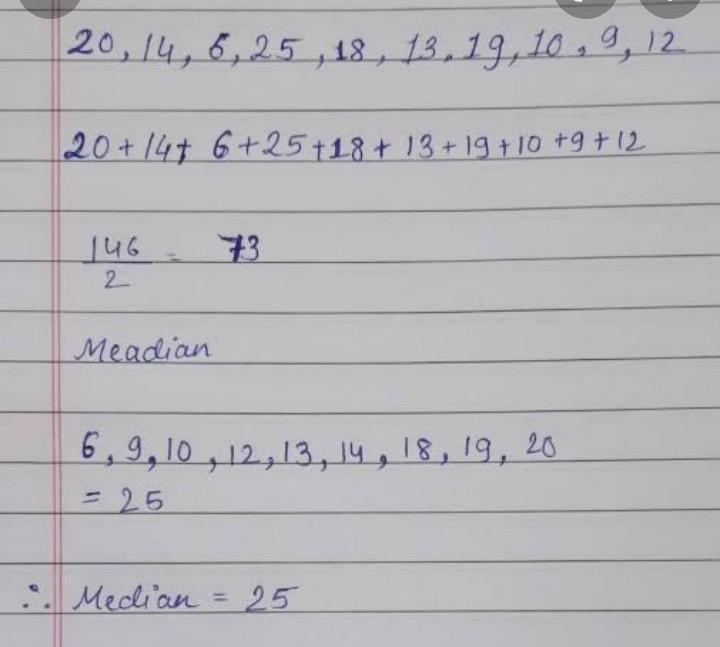 20, 14, 6, 25, 18, 13. 19, 10, 9, 12
20 + 14 + 6 + 25 + 18 + 13 + 19 + 10 + 9 + 12
146/2 = 73
Meadian
6, 9, 10, 12, 13, 14, 18, 19, 20
= 25
∴ Median = 25